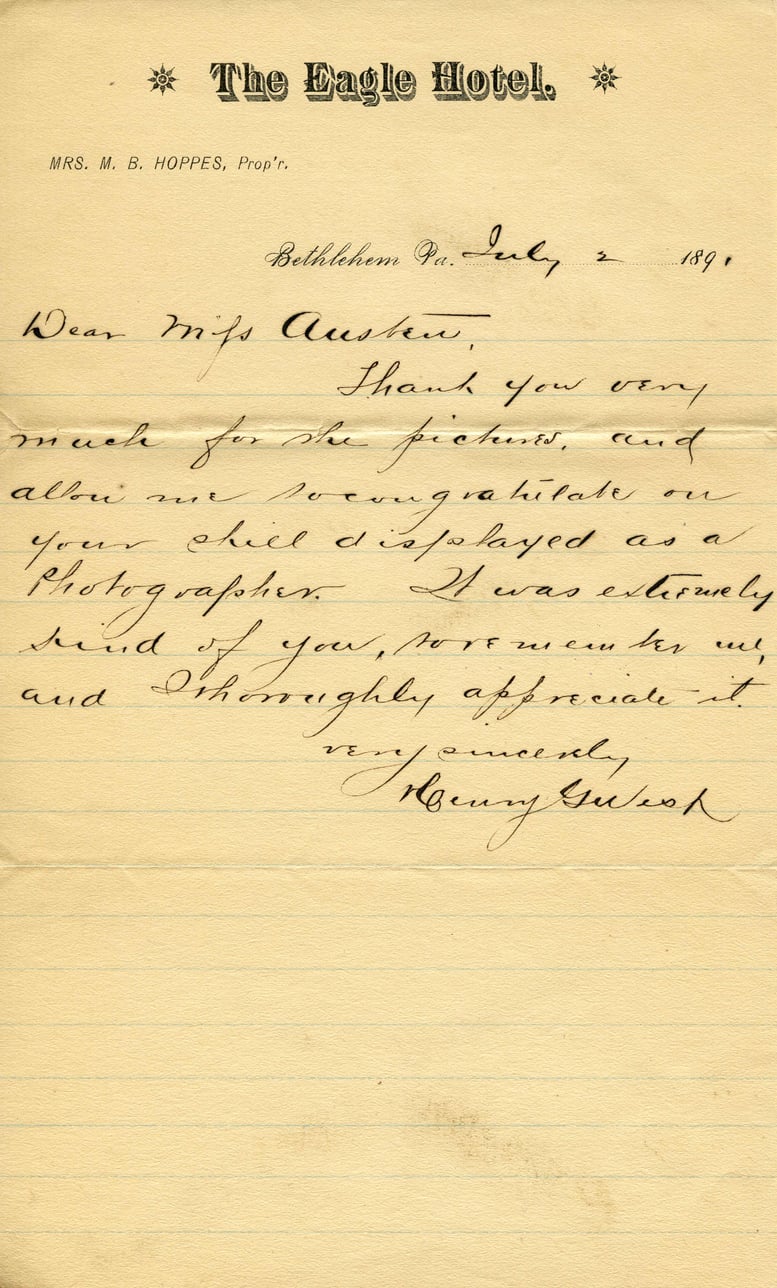 The Eagle Hotel.
MRS. M. B. HOPPES, Prop'r.
Bethlehem Pa. July 2 1891
Dear Miss Austen,
Thank you very
much for the pictures, and
allow me to congratulate on
your skill displayed as a
Photographer. It was extremely
kind of you, to remember me,
and I thoroughly appreciate it.
very sincerely
Henry G West